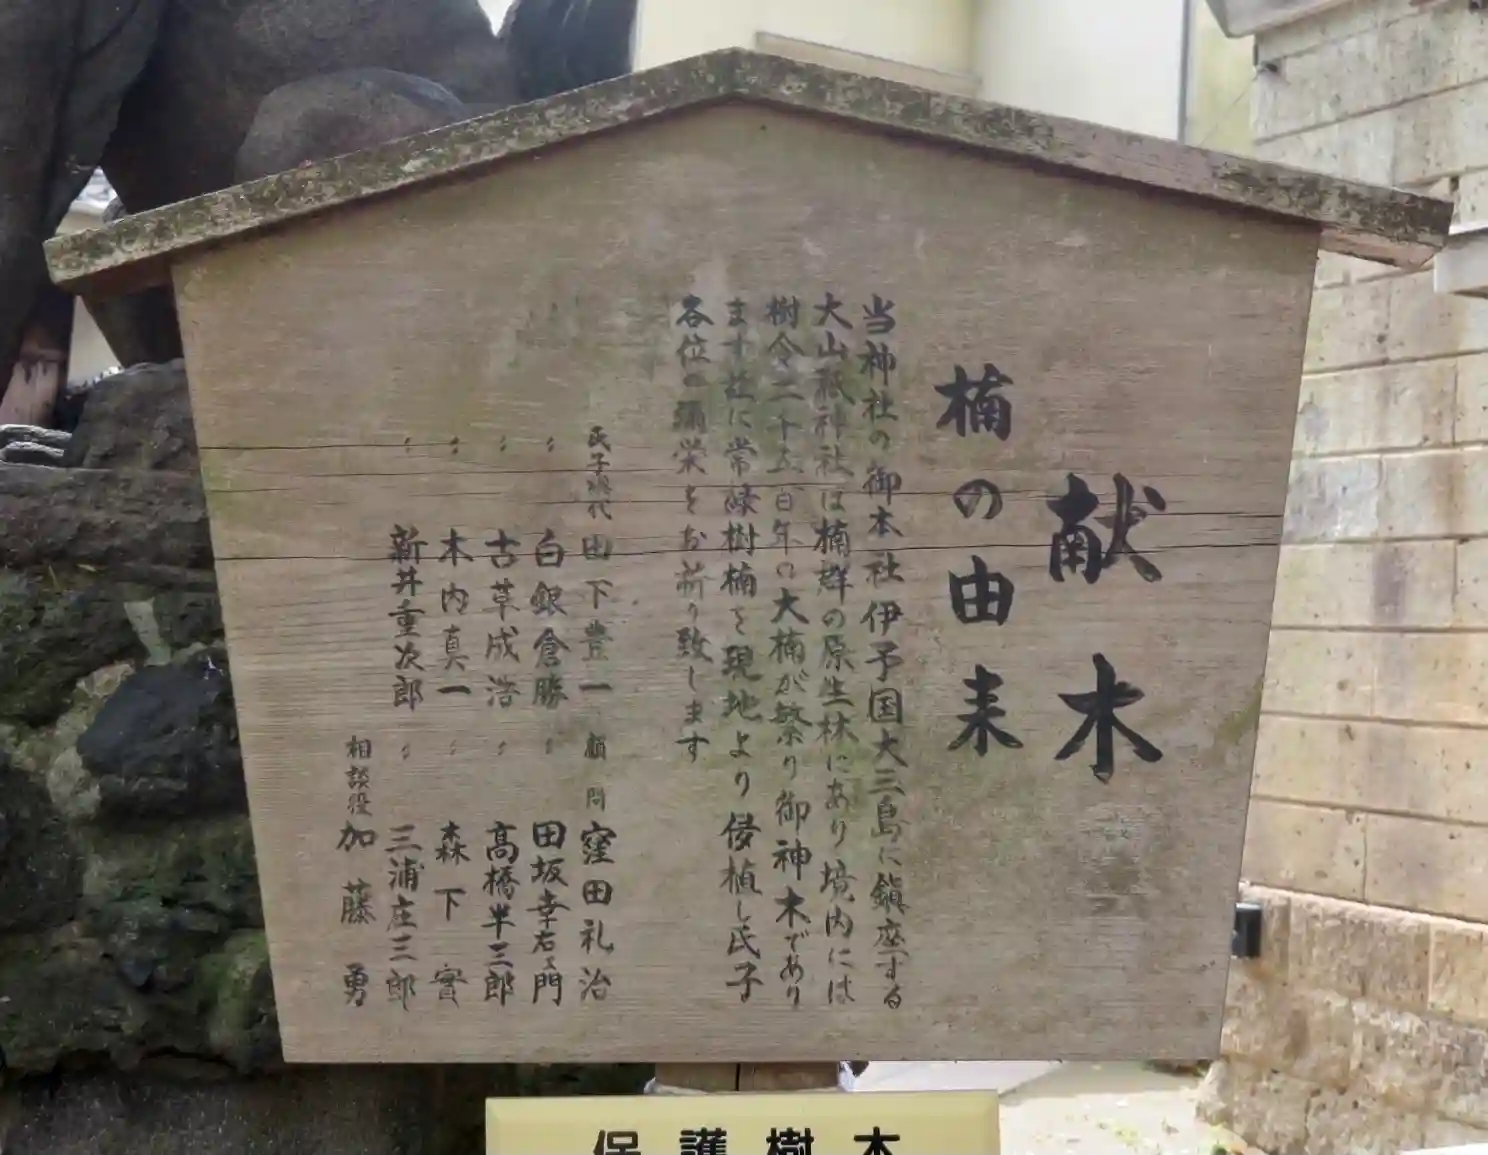 献木
楠の由来
当神社の御本社伊予国大三島に鎮座する
大山祇神社は楠群の原生林にあり境内には
樹令二千五百年の大楠が繁り御神木であり
ます玆に常緑樹楠を現地より 植し氏子
各位の彌栄をお祈り致します
氏子総代 田下豊一 顧問 窪田礼治
〃 白銀倉勝 〃 田坂幸右ヱ門
〃 古草成浩 〃 髙橋半三郎
〃 木内真一 〃 森下實
〃 新井重次郎 〃 三浦庄三郎
相談役 加藤勇
保護樹木